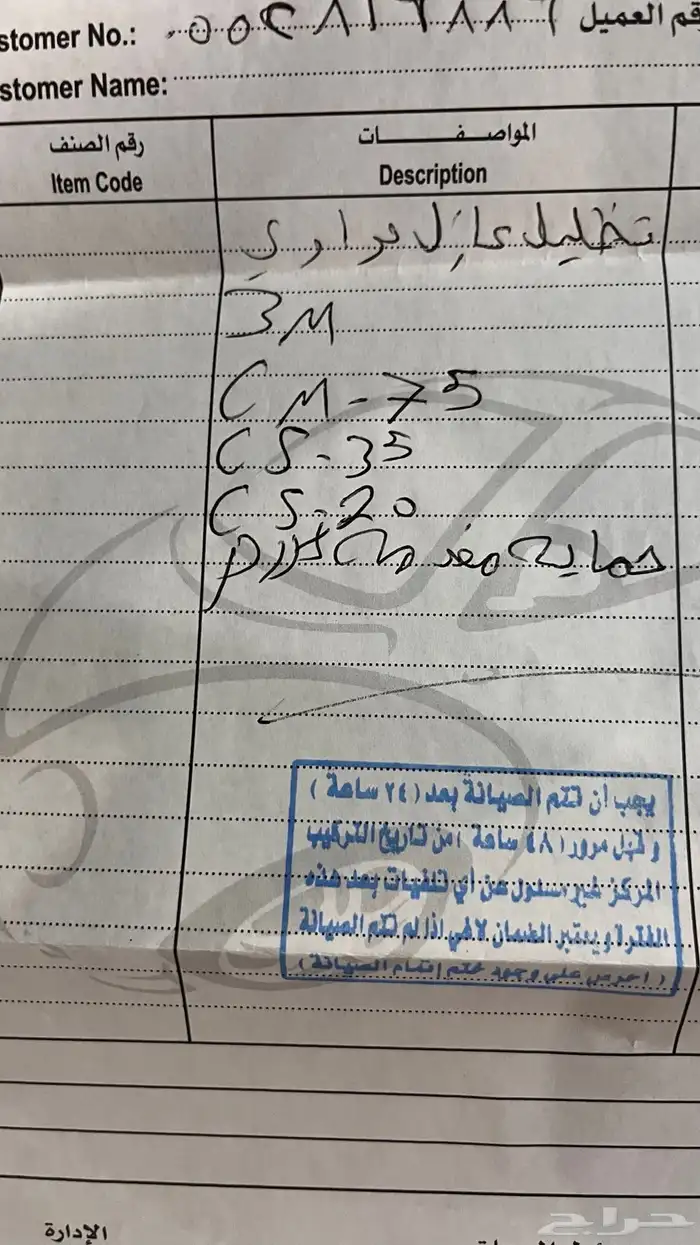 stomer No.: رقم العميل
stomer Name:
رقم الصنف المواصفات
Item Code Description
تظليل عازل حراري
3M
CM-75
CS-35
CS-20
حماية مقدمة
يجب أن تتم الصيانة بعد (٢٤ ساعة)
وقبل مرور (٤٨ ساعة) من تاريخ التركيب
المركز غير مسئول عن أي تلفيات بعد هذه
الفترة ويعتبر الضمان لاغي اذا لم تتم الصيانة
(احرص على وجود ختم إتمام الصيانة)
الإدارة
حراج